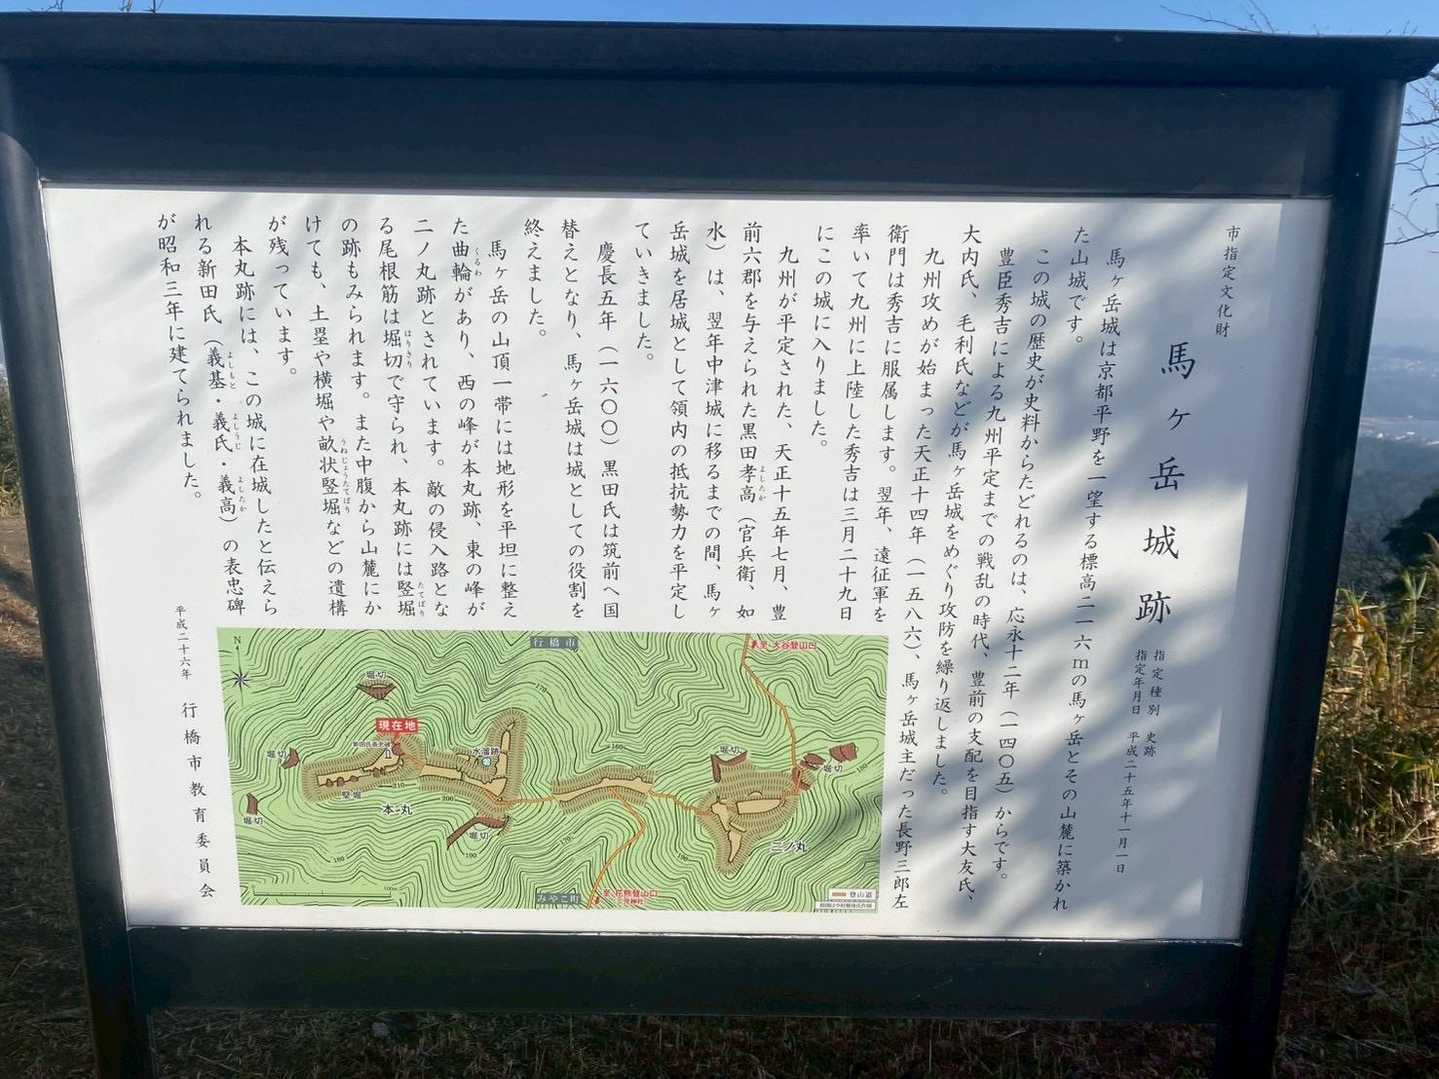 市指定文化財
馬ヶ岳城跡
指定種別　史跡
指定年月日　平成二十五年十一月一日
馬ヶ岳城は京都平野を一望する標高二一六mの馬ヶ岳とその山麓に築かれ
た山城です。
この城の歴史が史料からたどれるのは、応永十二年（一四〇五）からです。
豊臣秀吉による九州平定までの戦乱の時代、豊前の支配を目指す大友氏、
大内氏、毛利氏などが馬ヶ岳城をめぐり攻防を繰り返しました。
九州攻めが始まった天正十四年（一五八六）、馬ヶ岳城主だった長野三郎左
衛門は秀吉に服属します。翌年、遠征軍を
率いて九州に上陸した秀吉は三月二十九日
にこの城に入りました。
九州が平定された、天正十五年七月、豊
前六郡を与えられた黒田孝高（官兵衛、如
よしたか
水）は、翌年中津城に移るまでの間、馬ヶ
岳城を居城として領内の抵抗勢力を平定し
ていきました。
慶長五年（一六〇〇）黒田氏は筑前へ国
替えとなり、馬ヶ岳城は城としての役割を
終えました。
馬ヶ岳の山頂一帯には地形を平坦に整え
た曲輪があり、西の峰が本丸跡、東の峰が
くるわ
二ノ丸跡とされています。敵の侵入路とな
る尾根筋は堀切で守られ、本丸跡には竪堀
ほりきり
たてぼり
の跡もみられます。また中腹から山麓にか
けても、土塁や横堀や畝状竪堀などの遺構
うねじょうたてぼり
が残っています。
本丸跡には、この城に在城したと伝えら
れる新田氏（義基・義氏・義高）の表忠碑
よしもと
よしうじ
よしたか
が昭和三年に建てられました。
平成二十六年　行橋市教育委員会
N
行橋市
至・大谷登山口
堀切
現在地
堀切
水溜跡
堀切
堀切
竪堀
本丸
堀切
堀切
二ノ丸
みやこ町
至・花熊登山口
登山道
100m
170
160
180
210
200
190
170
180
190